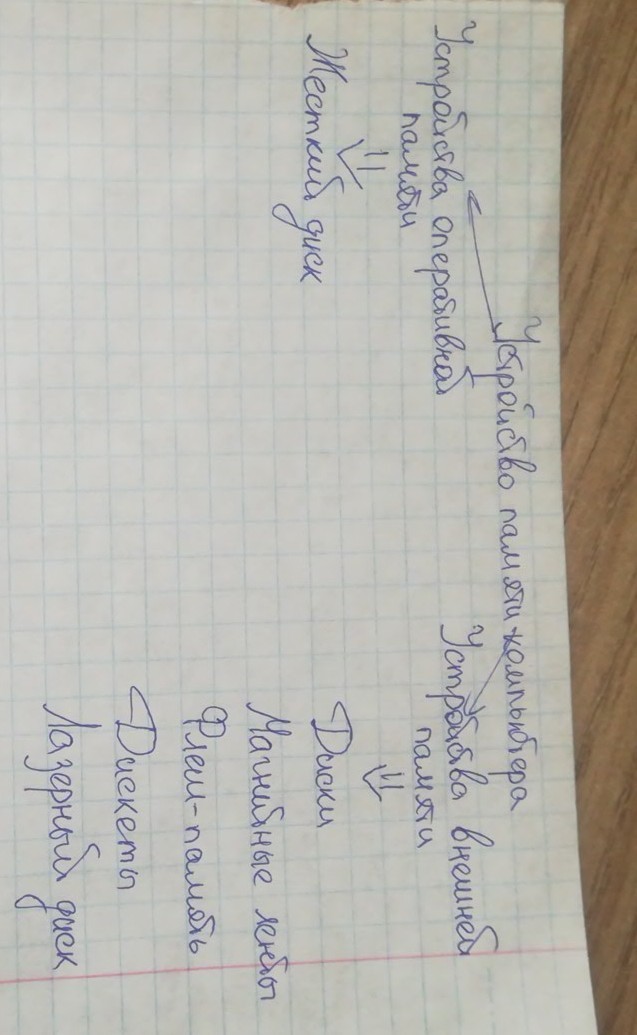 Устройство памяти компьютера
Устройства оперативной
памяти
Жесткий диск
Устройства внешней
памяти
Диски
Магнитные ленты
Флеш-память
Дискеты
Лазерный диск